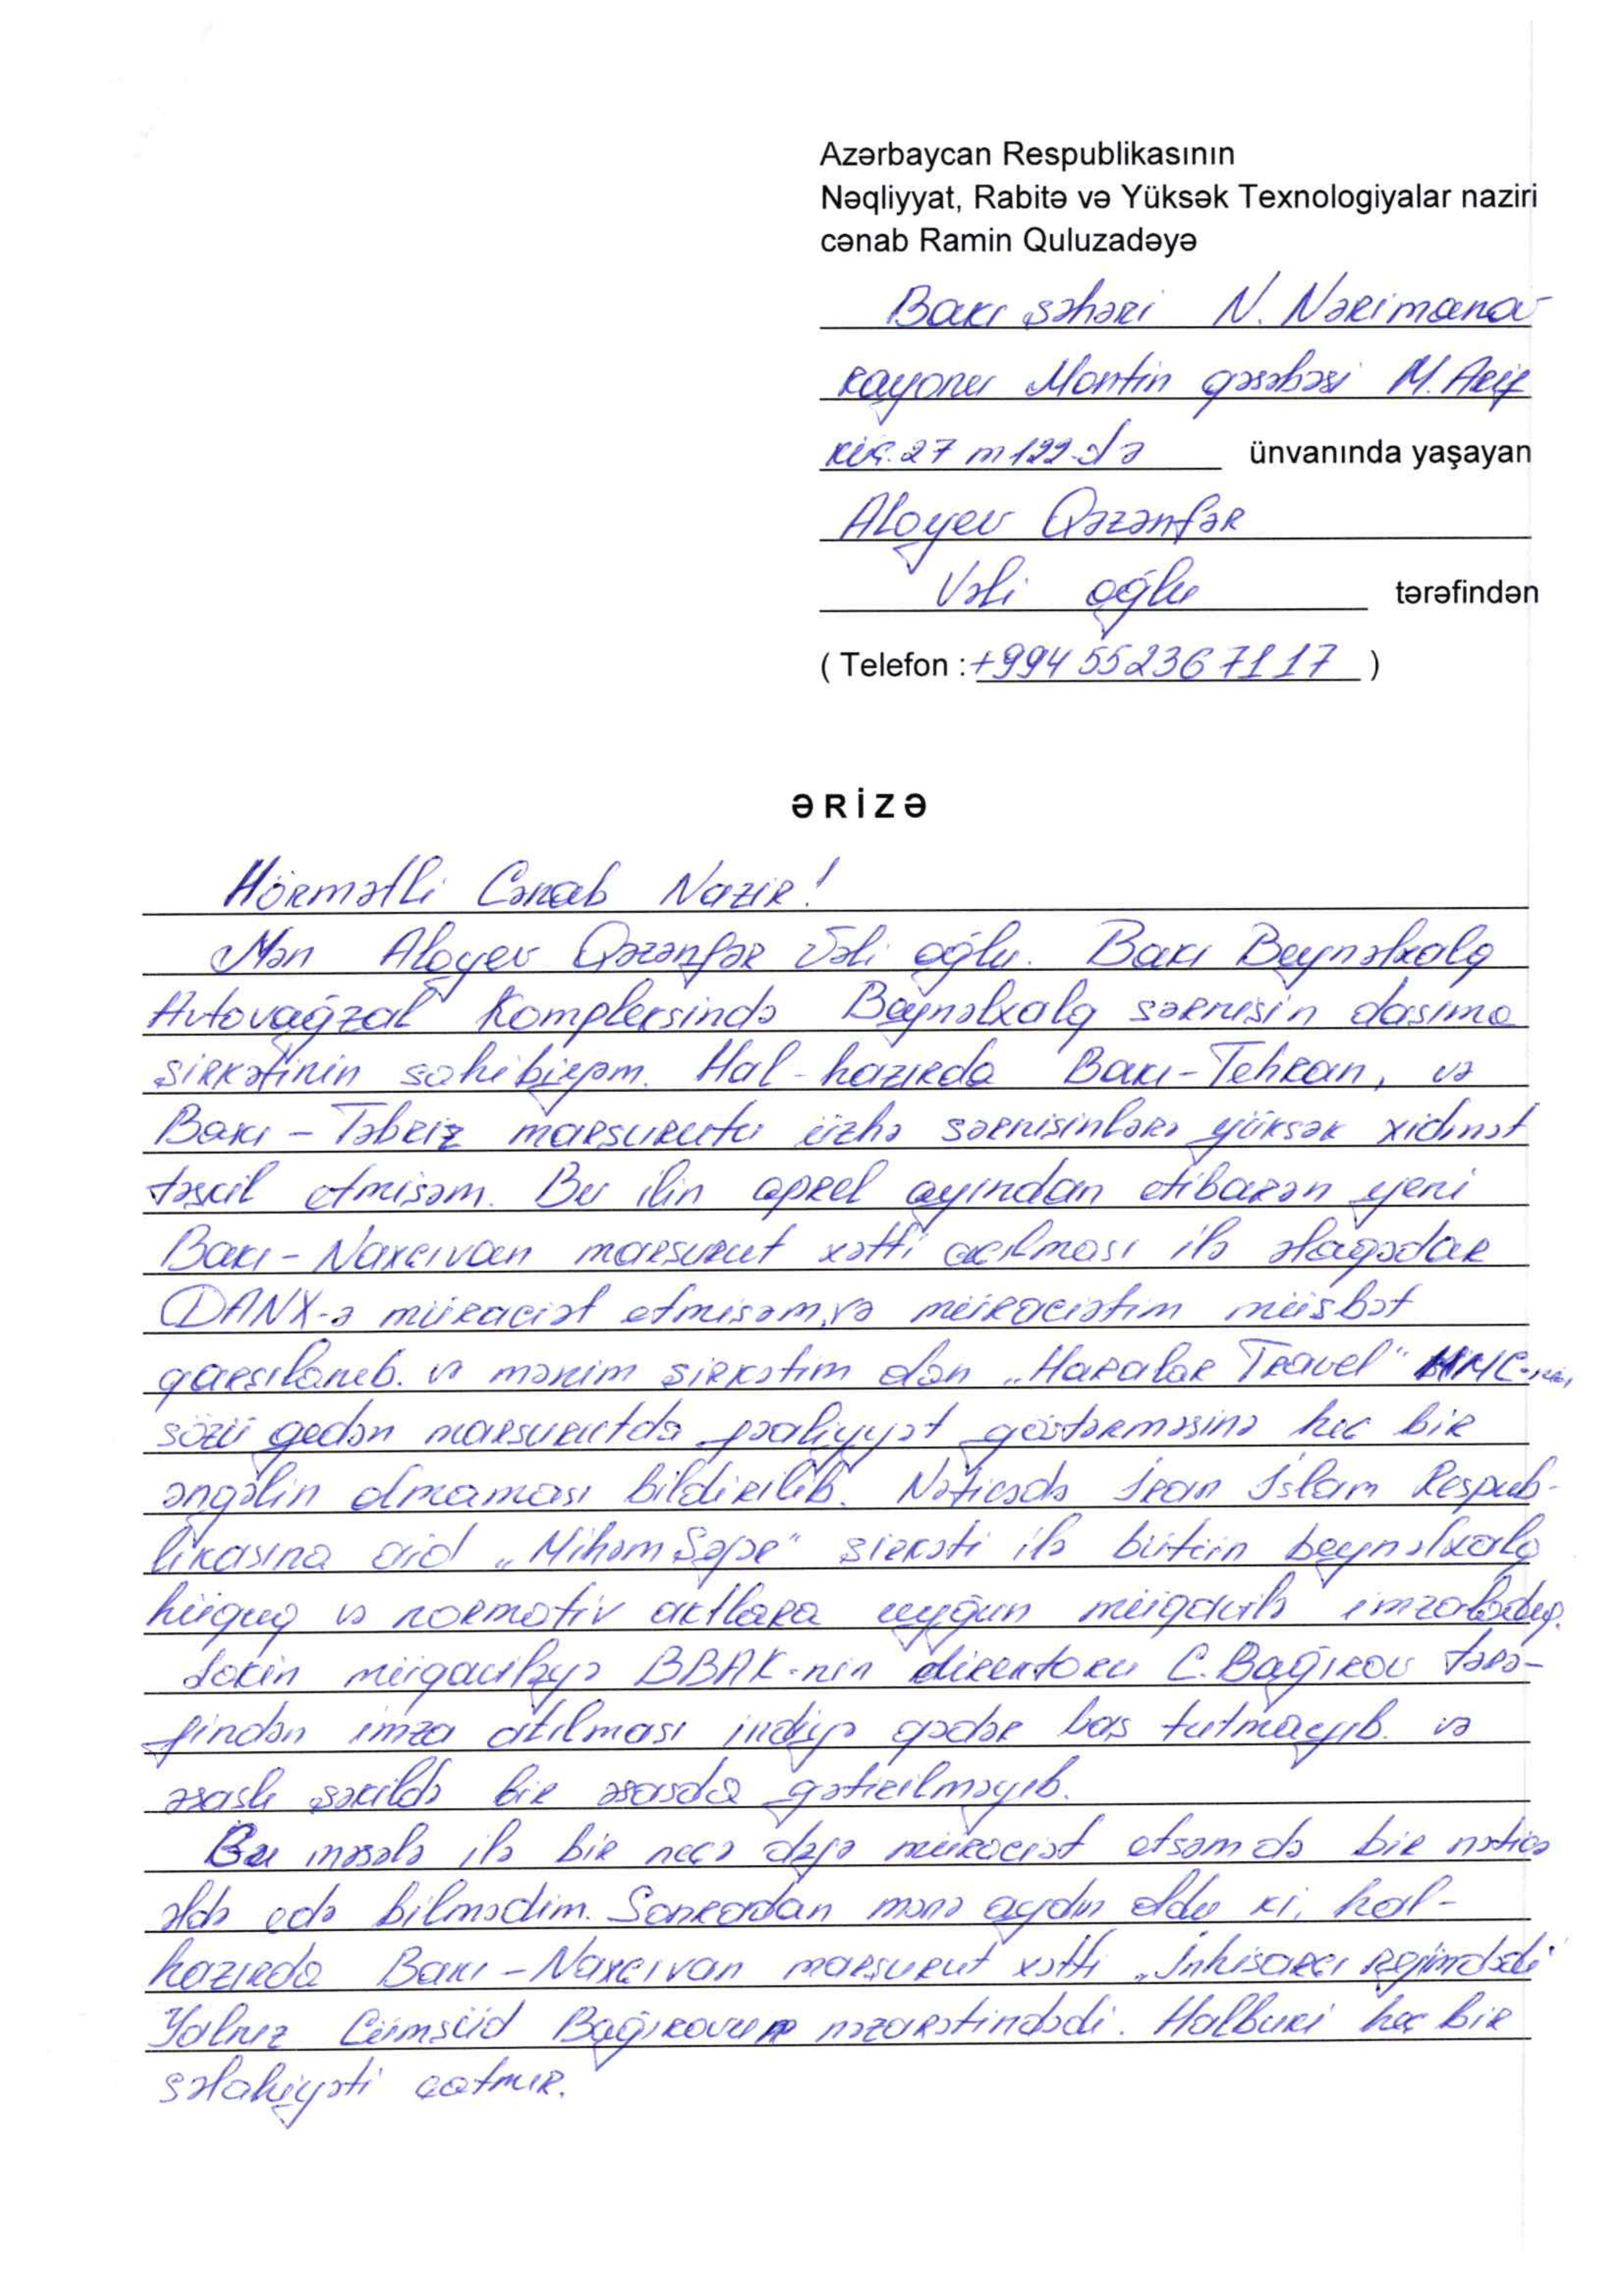 Azərbaycan Respublikasının
Nəqliyyat, Rabitə və Yüksək Texnologiyalar naziri
cənab Ramin Quluzadəyə
Bakı şəhəri N. Nərimanov
rayonu Montin qəsəbəsi M. Arif
küç. 27 m 122-də ünvanında yaşayan
Aloyev Qəzənfər
Vəli oğlu tərəfindən
( Telefon : +994 552367117 )
ƏRİZƏ
Hörmətli Cənab Nazir!
Mən Aloyev Qəzənfər Vəli oğlu. Bakı Beynəlxalq
Avtovağzal Kompleksində Beynəlxalq sərnişin daşıma
şirkətinin sahibiyəm. Hal-hazırda Bakı-Tehran, və
Bakı-Təbriz marşurutu üzrə sərnişinlərə yüksək xidmət
təşkil etmişəm. Bu ilin aprel ayından etibarən yeni
Bakı-Naxçıvan marşurut xətti açılması ilə əlaqədar
DANX-ə müraciət etmişəm, və müraciətim müsbət
qarşılanıb. və mənim şirkətim olan „Haralar Travel" MMC-nin,
sözü gedən marşurutda fəaliyyət göstərməsinə heç bir
əngəlin olmaması bildirilib. Nəticədə İran İslam Respub-
likasına aid „Mihəm Səfər" şirkəti ilə bütün beynəlxalq
hüquq və normativ aktlara uyğun müqavilə imzaladıq.
Lakin müqaviləyə BBAK-nin direktoru C. Bağırov tərə-
findən imza atılması indiyə qədər baş tutmayıb. və
əsaslı şəkildə bir əsasda gətirilməyib.
Bu məsələ ilə bir neçə dəfə müraciət etsəm də bir nəticə
əldə edə bilmədim. Sonradan mənə aydın oldu ki, hal-
hazırda Bakı-Naxçıvan marşurut xətti „İnhisarçı rejimdədi"
Yalnız Cümşüd Bağırovun nəzarətindədi. Halbuki heç bir
səlahiyəti çatmır.